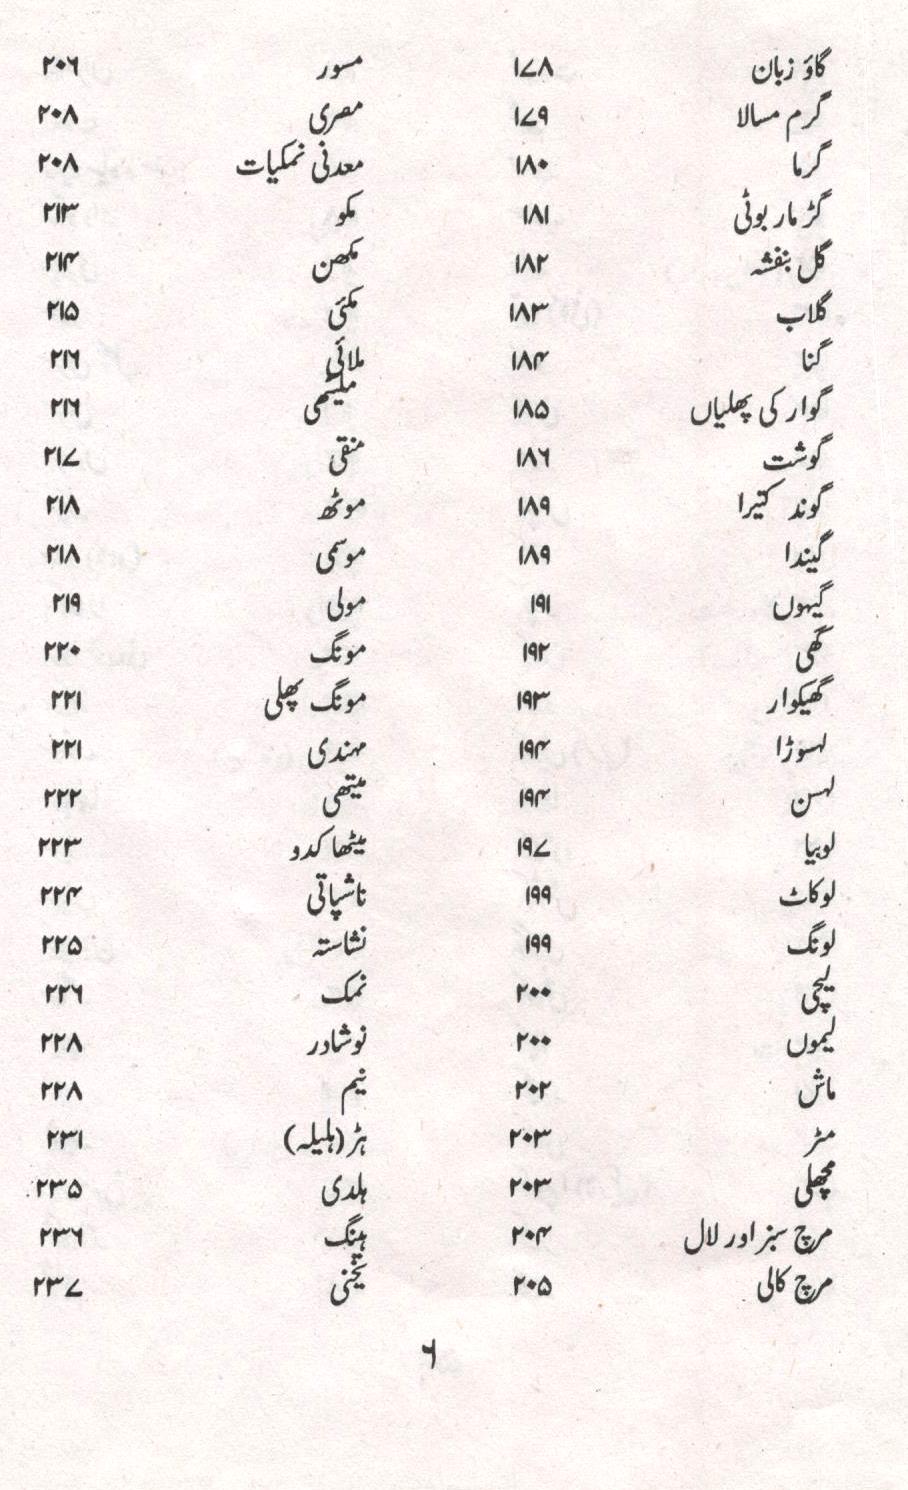 گاؤ زبان ۱۷۸
گرم مسالا ۱۷۹
گرما ۱۸۰
گڑمار بوٹی ۱۸۱
گل بنفشہ ۱۸۲
گلاب ۱۸۳
گنا ۱۸۴
گوار کی پھلیاں ۱۸۵
گوشت ۱۸۶
گوند کتیرا ۱۸۹
گیندا ۱۸۹
گیہوں ۱۹۱
گھی ۱۹۲
گھیکوار ۱۹۳
لسوڑا ۱۹۴
لہسن ۱۹۴
لوبیا ۱۹۷
لوکاٹ ۱۹۹
لونگ ۱۹۹
لیچی ۲۰۰
لیموں ۲۰۰
ماش ۲۰۲
مٹر ۲۰۳
مچھلی ۲۰۳
مرچ سبز اور لال ۲۰۴
مرچ کالی ۲۰۵
مسور ۲۰۶
مصری ۲۰۸
معدنی نمکیات ۲۰۸
مکو ۲۱۳
مکھن ۲۱۴
مکئی ۲۱۵
ملائی ۲۱۶
ملیٹھی ۲۱۶
منقی ۲۱۷
موٹھ ۲۱۸
موسمی ۲۱۸
مولی ۲۱۹
مونگ ۲۲۰
مونگ پھلی ۲۲۱
مہندی ۲۲۱
میتھی ۲۲۲
میٹھا کدو ۲۲۳
ناشپاتی ۲۲۴
نشاستہ ۲۲۵
نمک ۲۲۶
نوشادر ۲۲۸
نیم ۲۲۸
ہڑ (ہلیلہ) ۲۳۱
ہلدی ۲۳۵
ہینگ ۲۳۶
یخنی ۲۳۷
۶